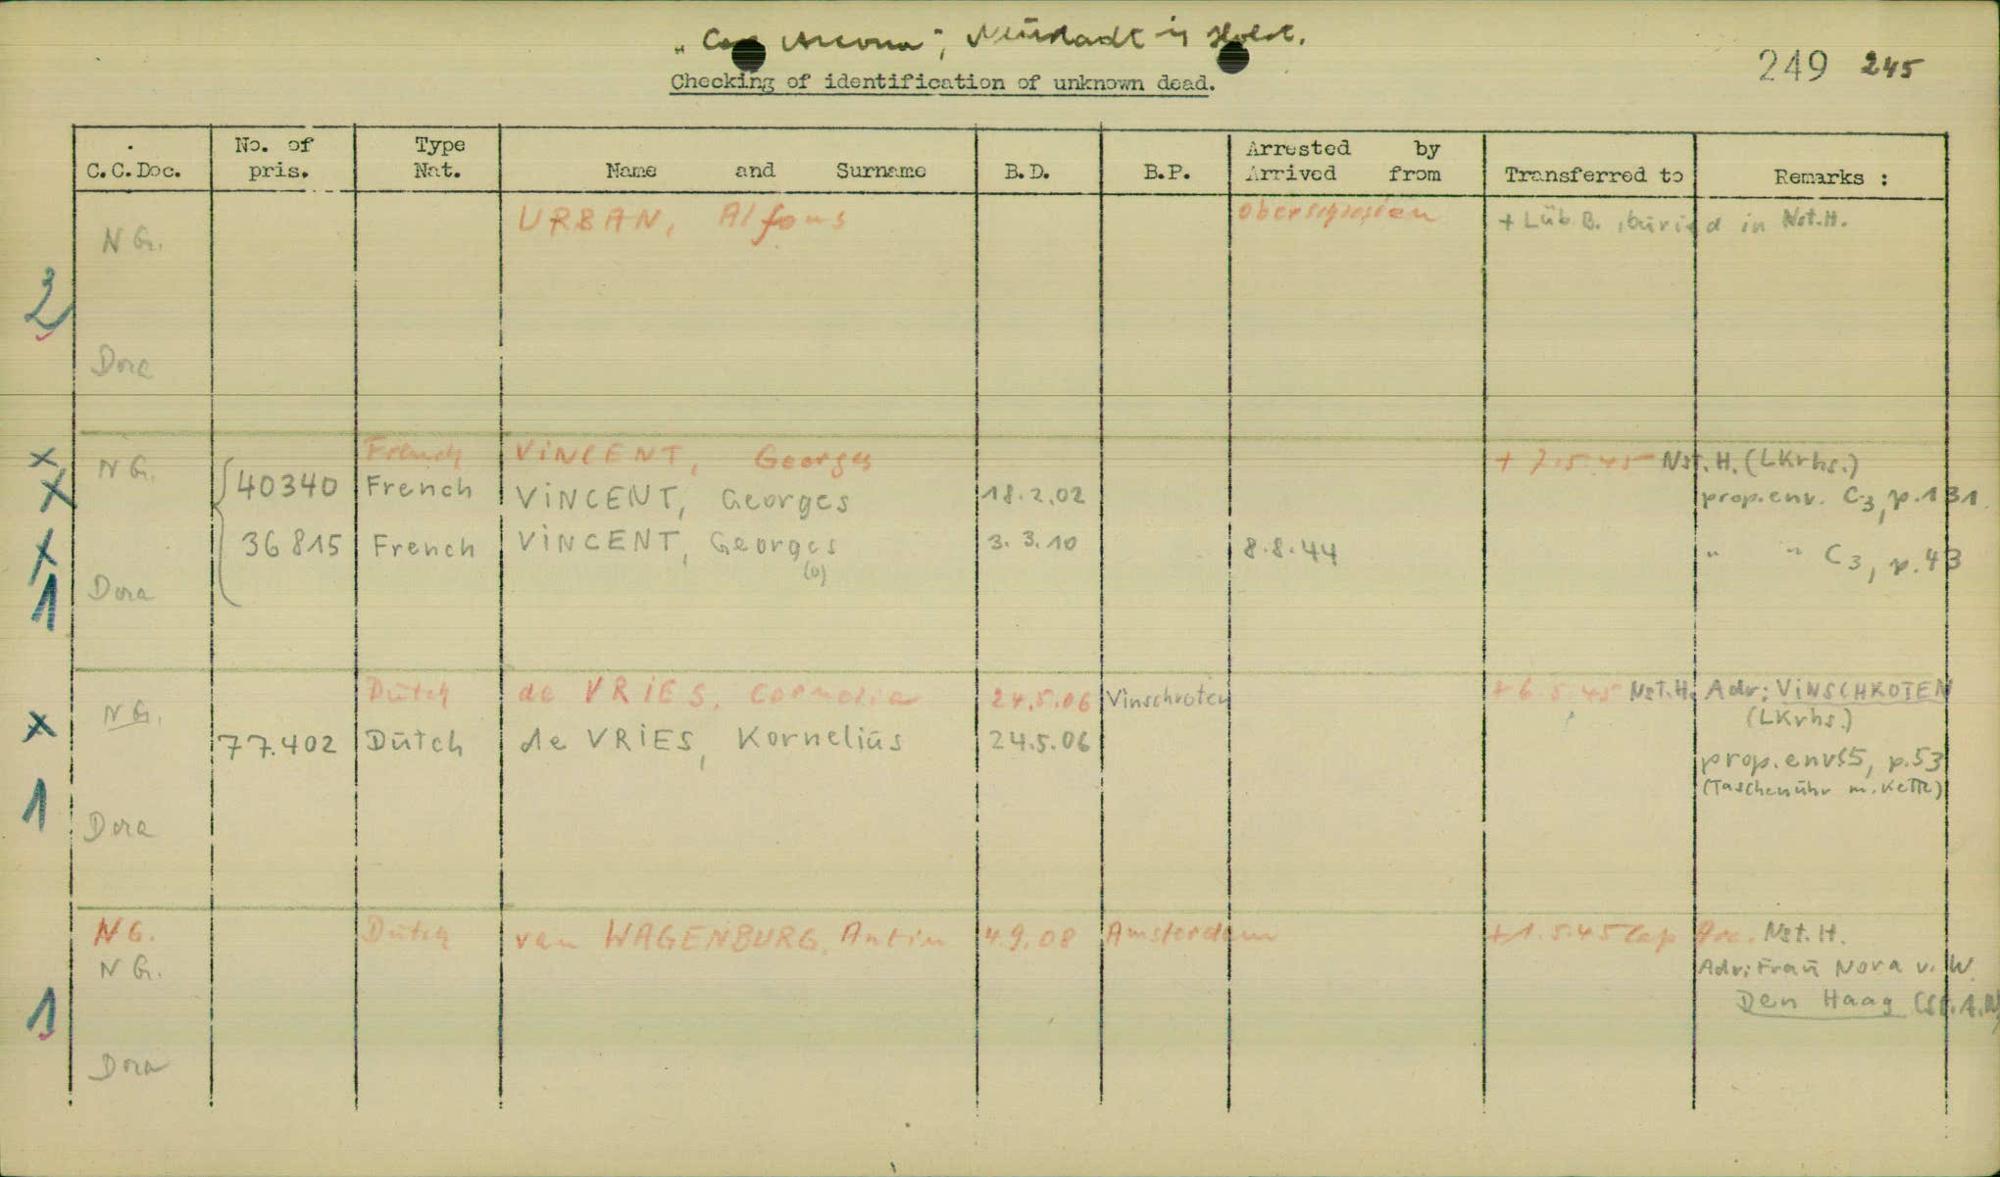 "Cap Arcona", Neustadt in Holst.
249 245
Checking of identification of unknown dead.
C.C.Doc. No. of pris. Type Nat. Name and Surname B.D. B.P. Arrested by Arrived from Transferred to Remarks :
NG. URBAN, Alfons Oberschlesien + Lüb.B. , buried in Nst.H.
2
Dora
x NG. French VINCENT, Georges + 7.5.45 Nst.H. (LKrhs.)
x 40340 French VINCENT, Georges 18.2.02 prop.env. C3, p.131
x 36815 French VINCENT, Georges 3.3.10 8.8.44 " " C3, p.43
(o)
1 Dora
NG. Dutch de VRIES, Cornelia 24.5.06 Vinschroten + 6.5.45 Nst.H. Adr: VINSCHROTEN
(LKrhs.)
x 77.402 Dutch de VRIES, Kornelius 24.5.06
prop.env 5, p.53
(Taschenuhr m. Kette)
1 Dora
NG. Dutch van WAGENBURG, Antin 4.9.08 Amsterdam + 1.5.45 Cap Arc. Nst.H.
NG. Adr: Frau Nora v. W.
1 Den Haag
Dora